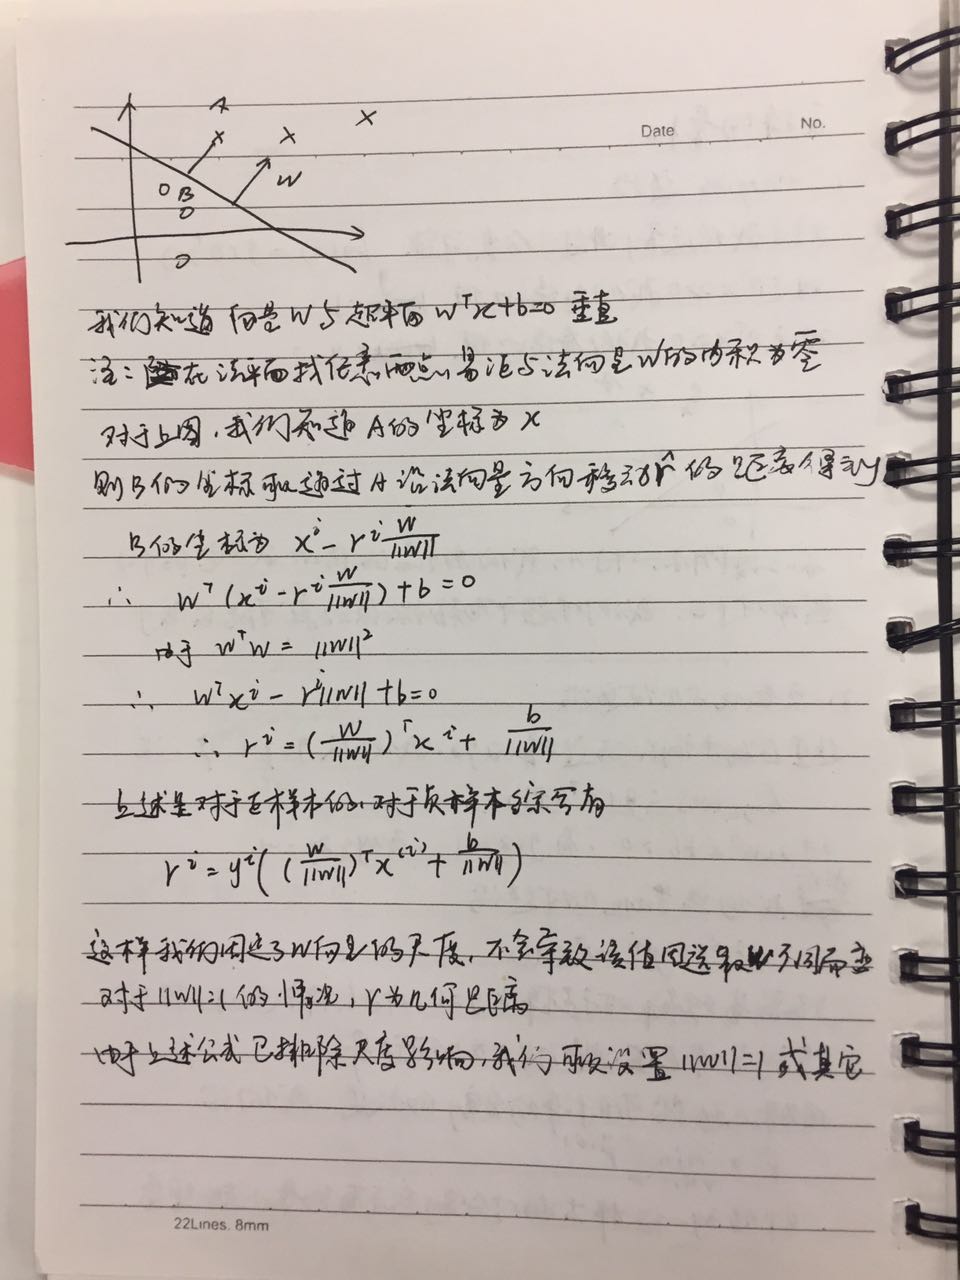 Date No.
A
× × ×
w
O B
O
O
我们知道 向量 w 与 超平面 wᵀx+b=0 垂直
注：在法平面找任意两点，易证与法向量 w 的内积为零
对于上图，我们知道 A的坐标为 x
则B的坐标可以通过A沿法向量方向移动 r 的距离得到
B的坐标为 xⁱ - rⁱ w/||w||
∴ wᵀ(xⁱ - rⁱ w/||w||) + b = 0
由于 wᵀw = ||w||²
∴ wᵀxⁱ - rⁱ||w|| + b = 0
∴ rⁱ = (w/||w||)ᵀ xⁱ + b/||w||
上述是对于正样本的，对于负样本综合有
rⁱ = yⁱ((w/||w||)ᵀ x⁽ⁱ⁾ + b/||w||)
这样我们固定了w向量的尺度，不会导致该值因选取不同而变
对于||w||=1的情况，r为几何距离
由于上述公式已排除尺度影响，我们可以设置||w||=1或其它
22Lines. 8mm